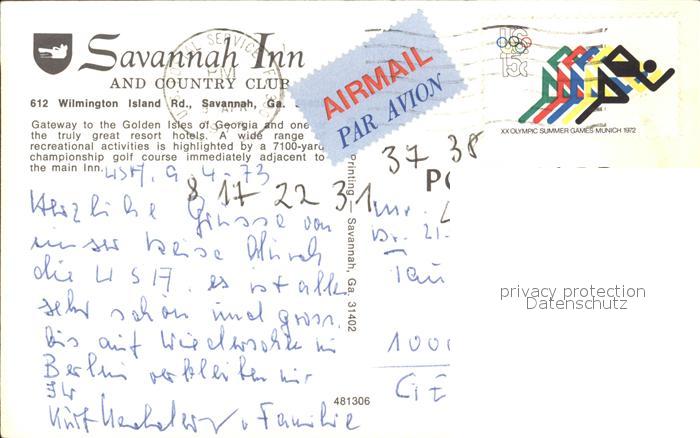 Savannah Inn
AND COUNTRY CLUB
612 Wilmington Island Rd., Savannah, Ga.
Gateway to the Golden Isles of Georgia and one
the truly great resort hotels. A wide range
recreational activities is highlighted by a 7100-yard
championship golf course immediately adjacent to
the main Inn.
USA. 9.4.-73
8 17 22 31 37 38
Herzliche Grüsse von
unser Reise durch
die USA. es ist alles
sehr schön und gross.
bis auf Wiedersehn in
Berlin verbleiben wir
Ihr
Kurt u. Familie
AIRMAIL
PAR AVION
US
15c
XX OLYMPIC SUMMER GAMES MUNICH 1972
Printing, Savannah, Ga. 31402
481306
PO
Mr.
21-
Tau
1000
GE
privacy protection
Datenschutz